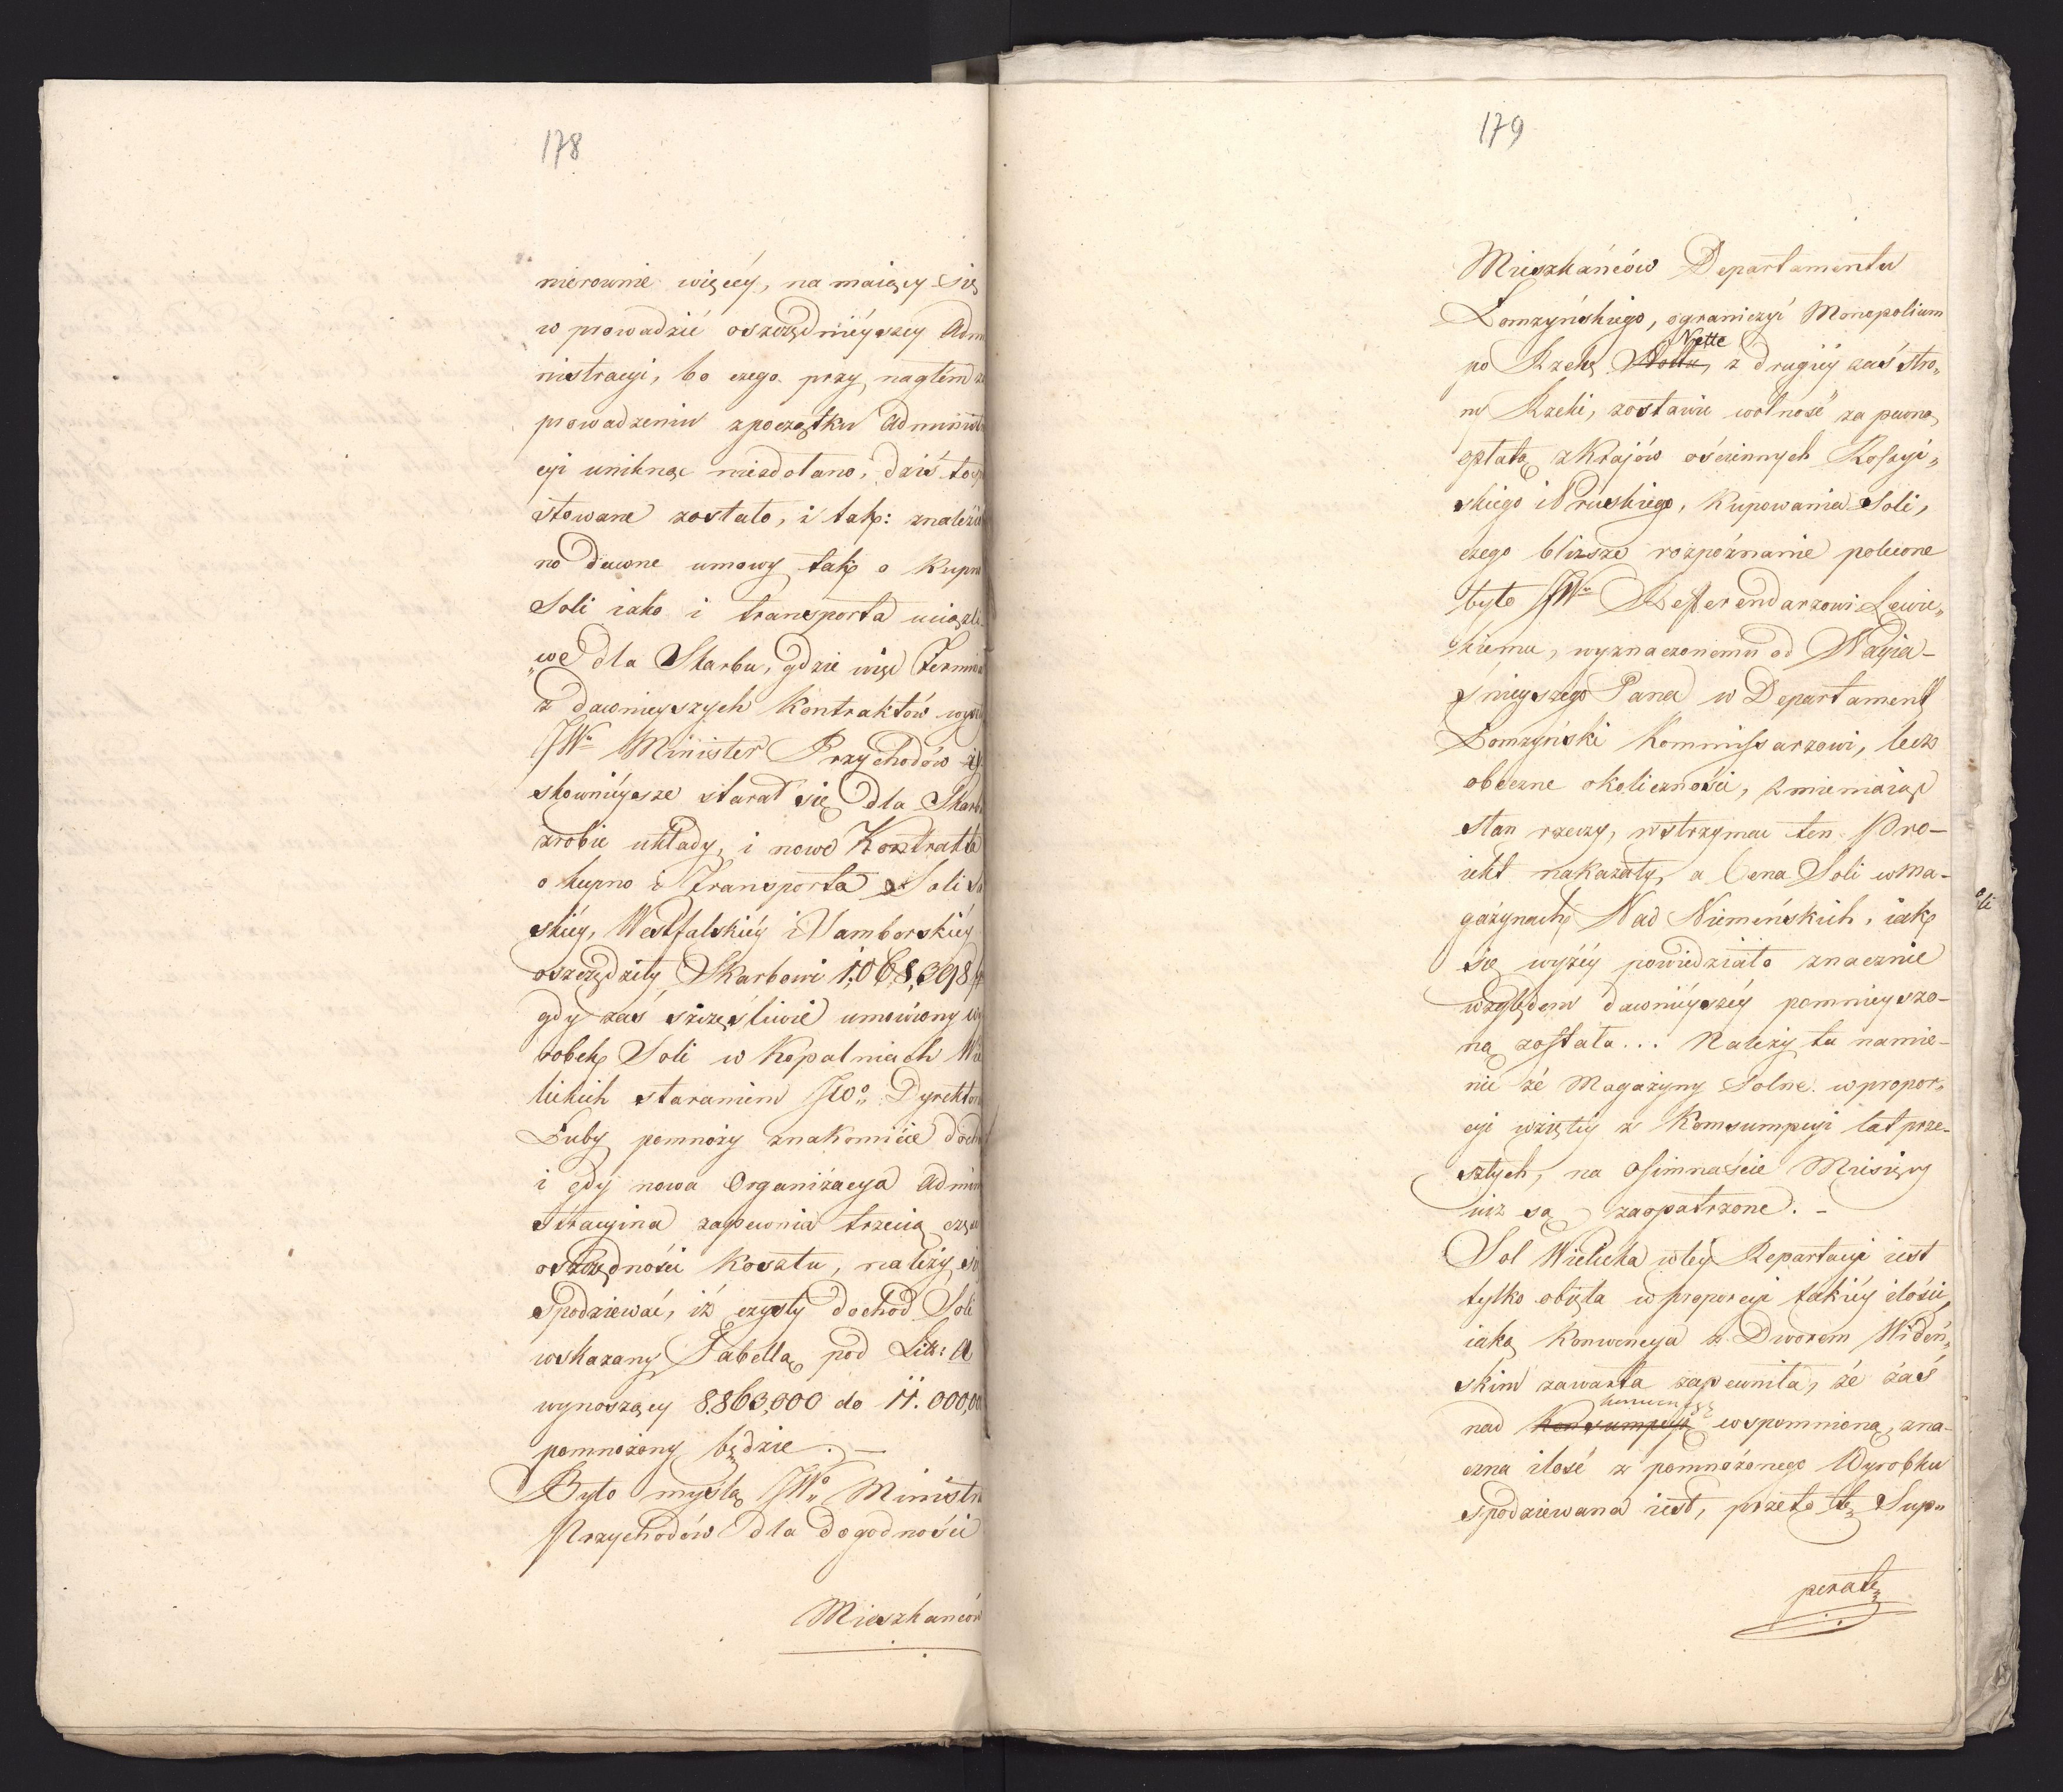 178
nierownie więcéy, na maiący się
w prowadzić oszczędnieyszey Adm
nistracyi, bo czego przy nagłém za
prowadzeniu zpoczątku Administr
cyi uniknąć niezdołano, dziś
stowane zostało, i tak: znalezio
no dawne umowy tak o kupn
Soli iako i transporta uciążli
„we dla Skarbu, gdzie więc Termin
z dawnieyszych Kontraktów
JW. Minister Przychodów
skownieysze starał się dla Skarb
zrobić układy, i nowe Kontrakta
o kupno i Transporta Soli
skiéy, Westfalskiéy i Hamborskiéy
oszczędziły Skarbowi 1,068,398
gdy zaś szczęśliwie umówiony wy
robek Soli w Kopalniach Wie
lickich staraniem JWo Dyrektora
Łuby pomnoży znakomicie doch
i gdy nowa Organizacya admin
stracyina zapewnia trzecią częś
oszczędności Kosztu, należy się
spodziewać, iż czysty dochód Soli
wskazany Tabellą pod Litt: A
wynoszący 8.863,000 do 11.000,00
pomnożony będzie. —
Było myślą JWo Ministra
Przychodów dla dogodności
Mieszkanców
179
Mieszkańców Departamentu
Łomzyńskiego, ograniczyć Monopolium
Nette
po Rzekę z drugiéy zaś stro„
ny Rzeki, zostawić wolność za pewną
opłatą z Krajów ościennych Rossyi„
skiego i Pruskiego, Kupowania Soli,
czego bliższe rozpoźnanie polecone
było JWu Refferendarzowi Lewic„
kiemu, wyznaczonemu od Nayia-
śnieyszego Pana w Departament
Łomzyński Kommissarzowi, lecz
obeczne okoliczności, zmieniaiąc
stan rzeczy, wstrzymać ten Pro-
iekt nakazały, a Cena Soli w Ma-
gażynach Nad Niemeńskich, iak
się wyżéy powiedziało znacznie
względem dawnieyszéy pomnieyszo-
ną została... Należy tu namie-
nić że Magażyny Solne w propor„
cyi wziętéy z Komsumpcyi lat prze-
szłych, na Ośimnaście Miesięcy
iuż są zaopatrzone. -
Sol Wielicka w téy Repartacyi iest
tylko obięta w proporcyi takiéy ilości
iaką Konwencya z Dworem Wideń„
skim zawarta zapewniła, że zaś
nad Konsumpcyą wspomnioną, zna-
czna ilość z pomnożonego Wyrobku
spodziewana iest, przeto tę Sup„
peratę